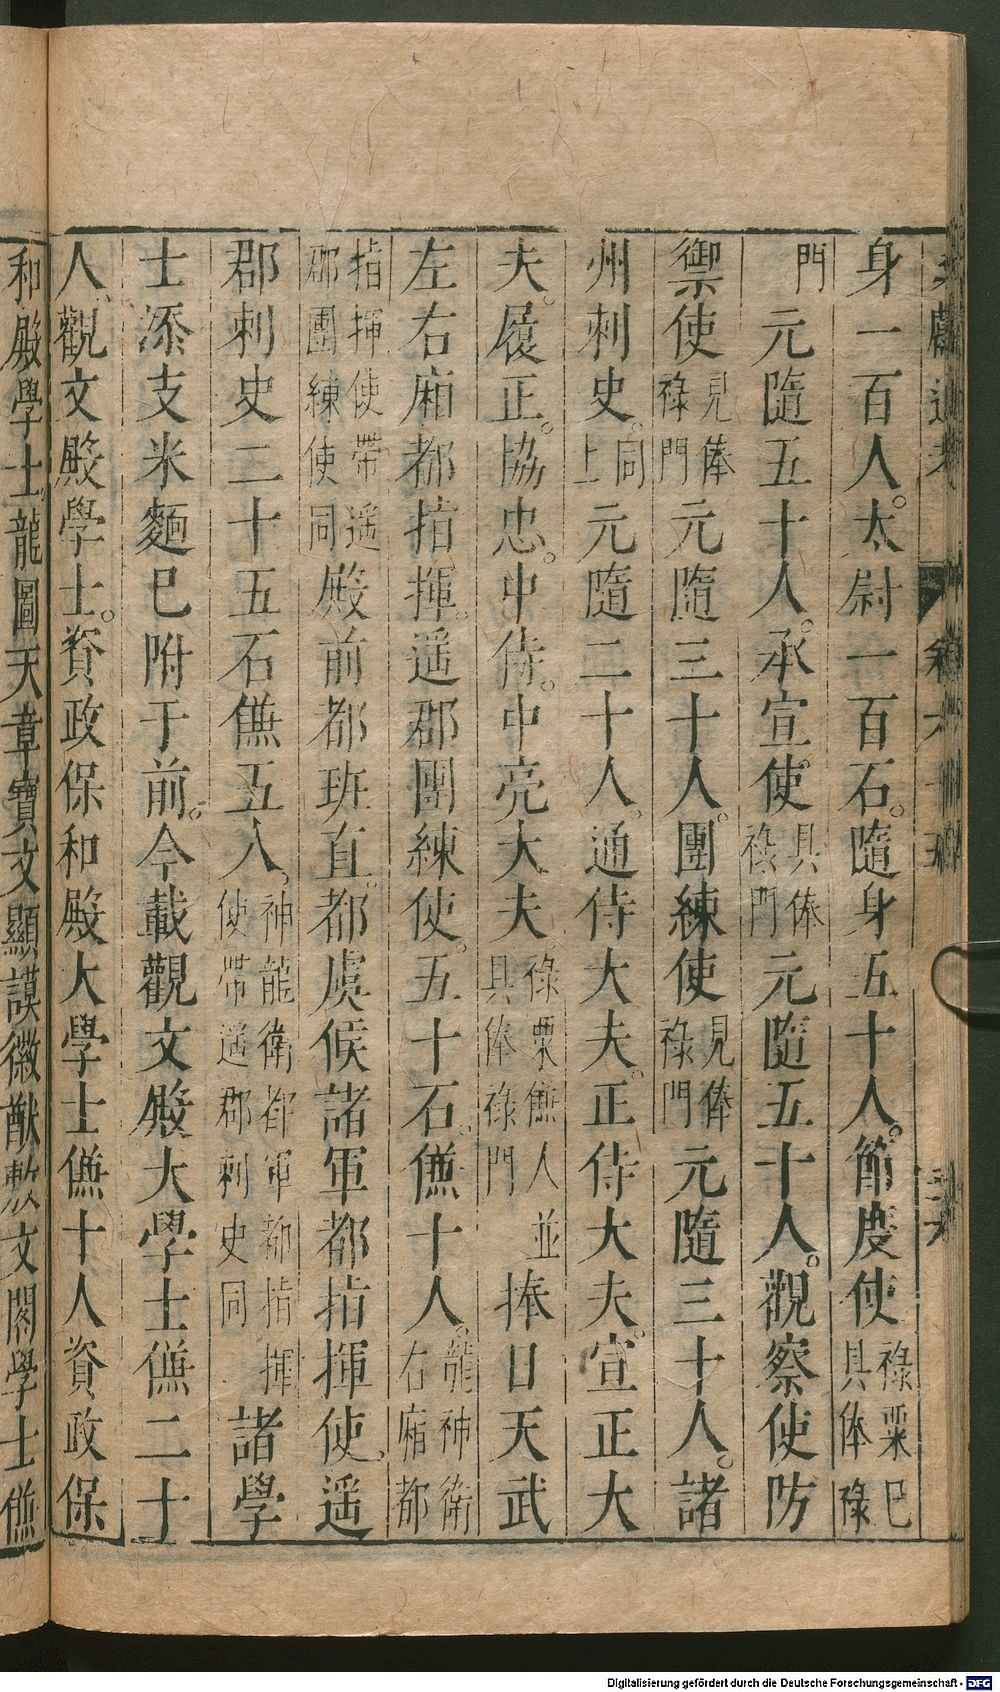 身一百人。太尉一百石。隨身五十人。節度使祿粟巳具俸祿
門元隨五十人。承宣使具俸祿門元隨五十人。觀察使防
禦使見俸祿門元隨三十人。團練使見俸祿門元隨三十人。諸
州刺史。同上元隨二十人。通侍大夫。正侍大夫。宣正大
夫。履正。協忠。中侍。中亮大夫。祿粟傔人並具俸祿門捧日天武
左右廂都指揮。遥郡團練使。五十石。傔十人。龍神衛右廂都
指揮使帶遥郡團練使同殿前都班直。都虞候諸軍都指揮使。遥
郡刺史二十五石傔五人。神龍衛都軍都指揮使帶遥郡刺史同諸學
士添支米麵巳附于前。今載觀文殿大學士傔二十
人、觀文殿學士。資政保和殿大學士傔十人資政保
和殿學士。龍圖天章寶文顯謨徽猷敷文閣學士傔
Digitalisierung gefördert durch die Deutsche Forschungsgemeinschaft - DFG